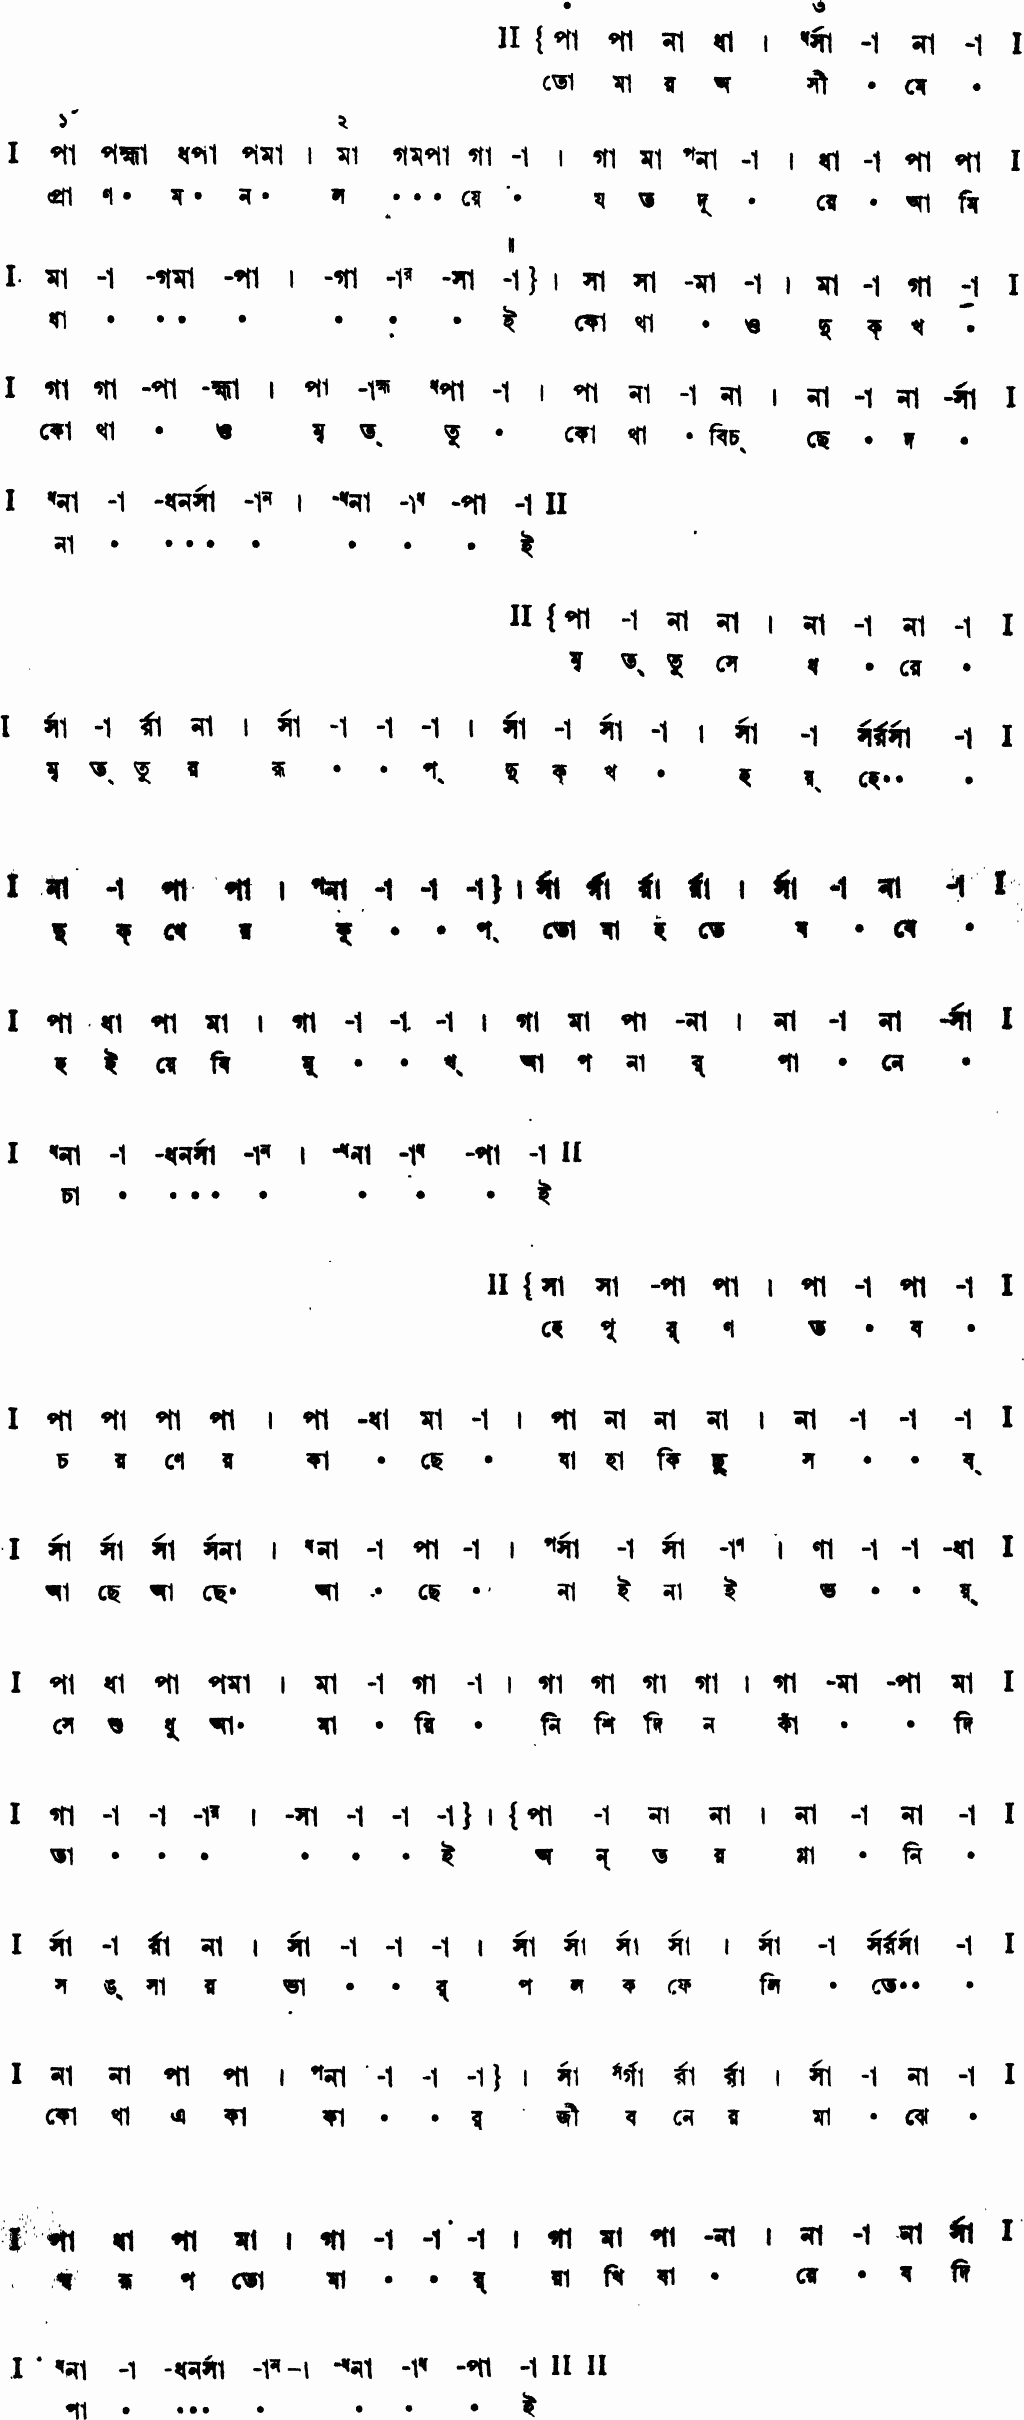 • ৩
II {পা পা না ধা । ধর্সা -া না -া I
তো মা র অ সী • মে •
১´ ২
I পা পহ্মা ধপা পমা । মা গমপা গা -া । গা মা পনা -া । ধা -া পা পা I
প্রা ণ• ম• ন• ল ••• য়ে • য ত দূ • রে • আ মি
॥
I মা -া -গমা -পা । -গা -ার -সা -া } । সা সা -মা -া । মা -া গা -া I
ধা • •• • • • • ই কো থা • ও দু ক্ খ •
I গা গা -পা -হ্মা । পা -াহ্ম ধপা -া । পা না -া না । না -া না -র্সা I
কো থা • ও মৃ ত্ তু • কো থা • বিচ্ ছে • দ •
I ধনা -া -ধনর্সা -ান । -ধনা -াধ -পা -া II
না • ••• • • • • ই
II {পা -া না না । না -া না -া I
মৃ ত্ তু সে ধ • রে •
I র্সা -া র্রা না । র্সা -া -া -া । র্সা -া র্সা -া । র্সা -া র্সর্রর্সা -া I
মৃ ত্ তু র রূ • • প্ দু ক্ খ • হ য়্ হে•• •
I না -া পা পা । পনা -া -া -া} । র্সা র্গা র্রা র্রা । র্সা -া না -া I
দু ক্ খে র কূ • • প্ তো মা হ তে য • বে •
I পা ধা পা মা । গা -া -া -া । গা মা পা -না । না -া না -র্সা I
হ ই য়ে বি মু • • খ্ আ প না র্ পা • নে •
I ধনা -া -ধনর্সা -ান । -ধনা -াধ -পা -া II
চা • ••• • • • • ই
II {সা সা -পা পা । পা -া পা -া I
হে পূ র্ ণ ত • ব •
I পা পা পা পা । পা -ধা মা -া । পা না না না । না -া -া -া I
চ র ণে র কা • ছে • যা হা কি ছু স • • ব্
I র্সা র্সা র্সা র্সনা । ধনা -া পা -া । পর্সা -া র্সা -াণ । ণা -া -া -ধা I
আ ছে আ ছে• আ • ছে • না ই না ই ভ • • য়্
I পা ধা পা পমা । মা -া গা -া । গা গা গা গা । গা -মা -পা মা I
সে শু ধু আ• মা • রি • নি শি দি ন কাঁ • • দি
I গা -া -া -ার । -সা -া -া -া} । {পা -া না না । না -া না -া I
তা • • • • • • ই অ ন্ ত র গ্লা • নি •
I র্সা -া র্রা না । র্সা -া -া -া । র্সা র্সা র্সা র্সা । র্সা -া র্সর্রর্সা -া I
স ঙ্ সা র ভা • • র্ প ল ক ফে লি • তে•• •
I না না পা পা । পনা -া -া -া} । র্সা র্সর্গা র্রা র্রা । র্সা -া না -া I
কো থা এ কা কা • • র্ জী ব নে র মা • ঝে •
I পা ধা পা মা । গা -া -া -া । গা মা পা -না । না -া না র্সা I
স্ব রূ প তো মা • • র্ রা খি বা • রে • য দি
I ধনা -া -ধনর্সা -ান -। -ধনা -াধ -পা -া II II
পা • ••• • • • • ই